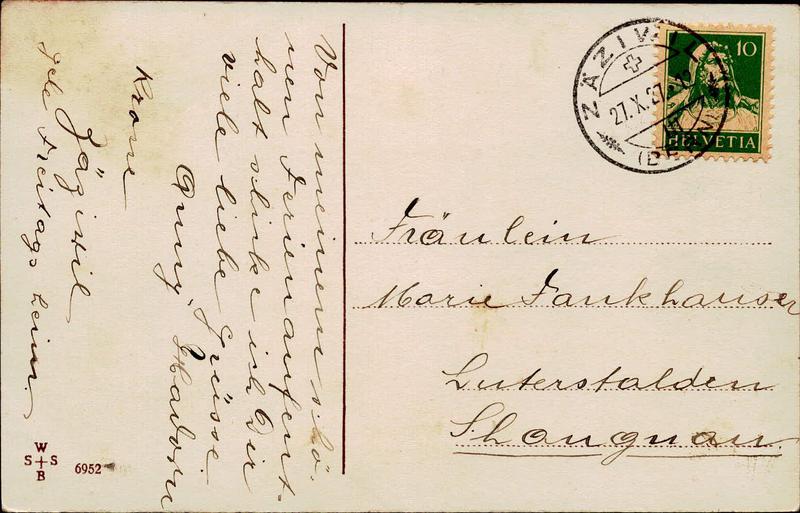 Von meinem schö-
nen Ferienaufent-
halt schicke ich Dir
viele liebe Grüsse
Hadorn
Krone
Zäziwil
Freitags heim.
W
S S
B
6952
ZÄZIWIL
27.X.27
(BERN)
10
HELVETIA
Fräulein
Marie Fankhauser
Luterstalden
Shangnau